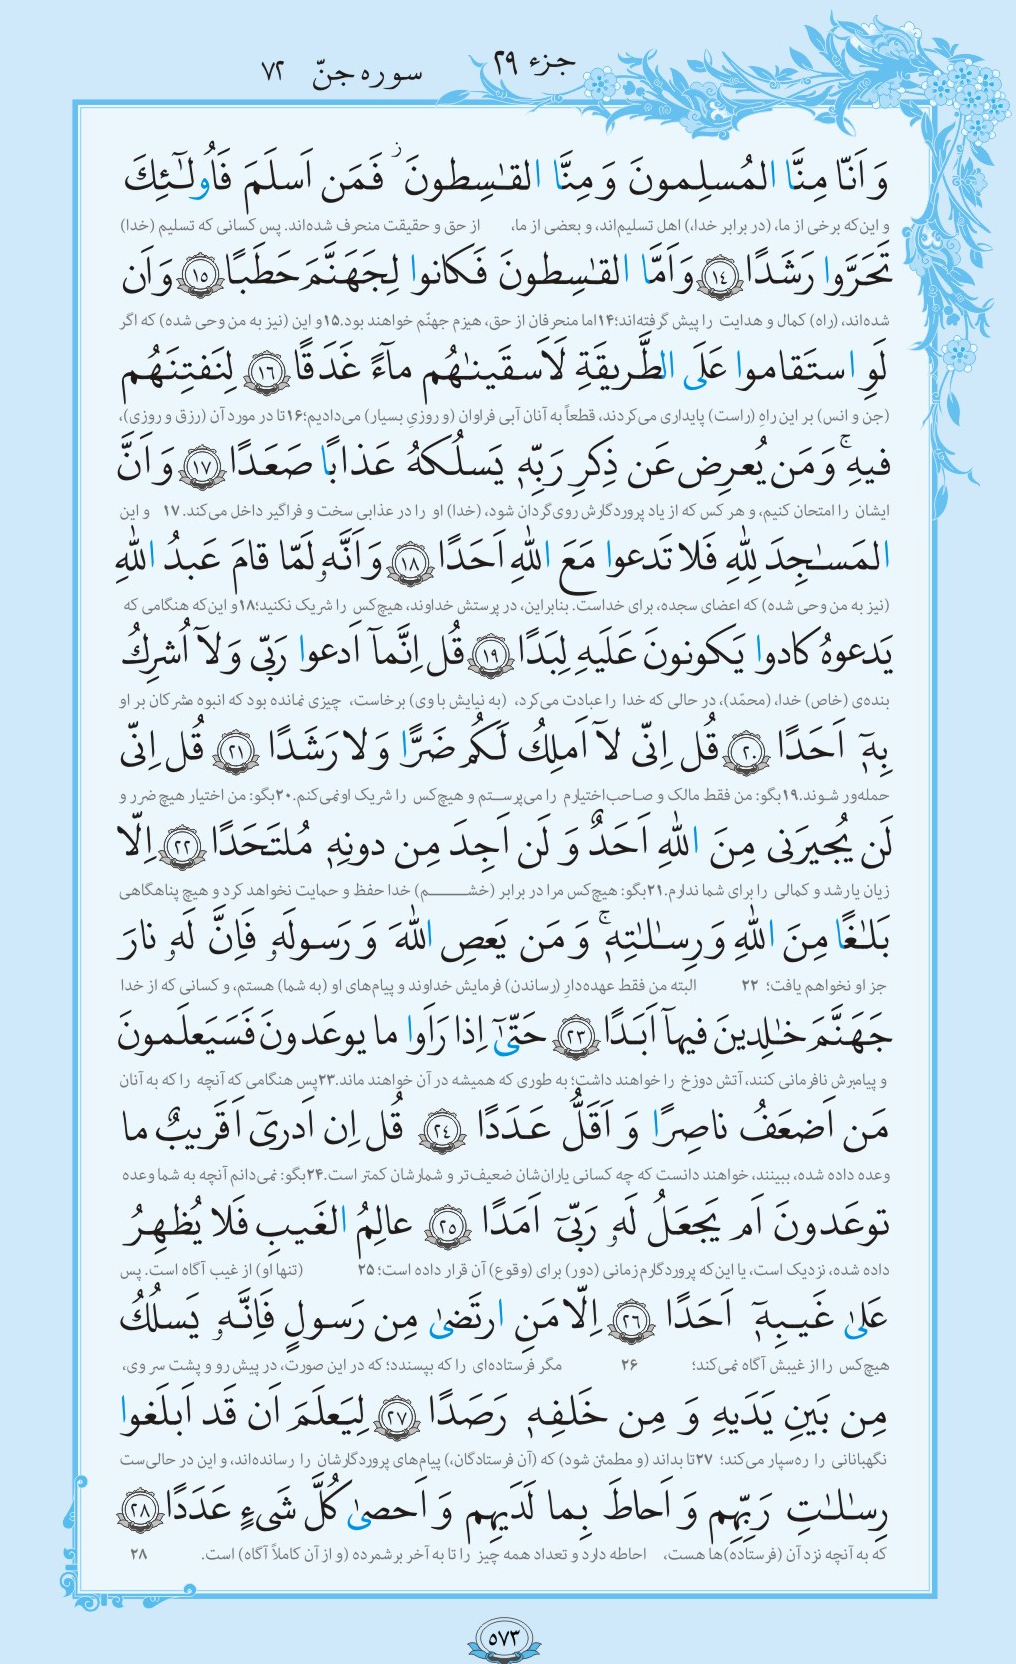 جزء ۲۹
سوره جنّ ۷۲
وَ اَنّا مِنَّا المُسلِمونَ وَ مِنَّا القٰسِطونَ ۖ فَمَن اَسلَمَ فَاُولٰٓئِكَ
و این‌که برخی از ما، (در برابر خدا،) اهل تسلیم‌اند، و بعضی از ما، از حق و حقیقت منحرف شده‌اند. پس کسانی که تسلیم (خدا)
تَحَرَّوا رَشَدًا ﴿١٤﴾ وَ اَمَّا القٰسِطونَ فَكانوا لِجَهَنَّمَ حَطَبًا ﴿١٥﴾ وَ اَن
شده‌اند، (راه) کمال و هدایت را پیش گرفته‌اند؛۱۴اما منحرفان از حق، هیزم جهنّم خواهند بود.۱۵و این (نیز به من وحی شده) که اگر
لَوِ استَقاموا عَلَى الطَّريقَةِ لَاَسقَينٰهُم مآءً غَدَقًا ﴿١٦﴾ لِنَفتِنَهُم
(جن و انس) بر این راهِ (راست) پایداری می‌کردند، قطعاً به آنان آبی فراوان (و روزیِ بسیار) می‌دادیم؛۱۶تا در مورد آن (رزق و روزی)،
فيهِ ۚ وَ مَن يُعرِض عَن ذِكرِ رَبِّهٖ يَسلُكهُ عَذابًا صَعَدًا ﴿١٧﴾ وَ اَنَّ
ایشان را امتحان کنیم، و هر کس که از یاد پروردگارش روی‌گردان شود، (خدا) او را در عذابی سخت و فراگیر داخل می‌کند. ۱۷ و این
المَسٰجِدَ لِلّٰهِ فَلا تَدعوا مَعَ اللّٰهِ اَحَدًا ﴿١٨﴾ وَ اَنَّهٗ لَمّا قامَ عَبدُ اللّٰهِ
(نیز به من وحی شده) که اعضای سجده، برای خداست. بنابراین، در پرستش خداوند، هیچ‌کس را شریک نکنید؛۱۸و این‌که هنگامی که
يَدعوهُ كادوا يَكونونَ عَلَيهِ لِبَدًا ﴿١٩﴾ قُل اِنَّمآ اَدعوا رَبّى وَ لآ اُشرِكُ
بنده‌ی (خاص) خدا، (محمّد)، در حالی که خدا را عبادت می‌کرد، (به نیایش با وی) برخاست، چیزی نمانده بود که انبوه مشرکان بر او
بِهٖٓ اَحَدًا ﴿٢٠﴾ قُل اِنّى لآ اَملِكُ لَكُم ضَرًّا وَ لا رَشَدًا ﴿٢١﴾ قُل اِنّى
حمله‌ور شوند.۱۹بگو: من فقط مالک و صاحب‌اختیارم را می‌پرستم و هیچ‌کس را شریک او نمی‌کنم.۲۰بگو: من اختیار هیچ ضرر و
لَن يُجيرَنى مِنَ اللّٰهِ اَحَدٌ وَ لَن اَجِدَ مِن دونِهٖ مُلتَحَدًا ﴿٢٢﴾ اِلّا
زیان یا رشد و کمالی را برای شما ندارم.۲۱بگو: هیچ‌کس مرا در برابر (خشم) خدا حفظ و حمایت نخواهد کرد و هیچ پناهگاهی
بَلٰغًا مِنَ اللّٰهِ وَ رِسٰلٰتِهٖ ۚ وَ مَن يَعصِ اللّٰهَ وَ رَسولَهٗ فَاِنَّ لَهٗ نارَ
جز او نخواهم یافت؛ ۲۲ البته من فقط عهده‌دارِ (رساندن) فرمایش خداوند و پیام‌های او (به شما) هستم، و کسانی که از خدا
جَهَنَّمَ خٰلِدينَ فيهآ اَبَدًا ﴿٢٣﴾ حَتّىٰٓ اِذا رَاَوا ما يوعَدونَ فَسَيَعلَمونَ
و پیامبرش نافرمانی کنند، آتش دوزخ را خواهند داشت؛ به طوری که همیشه در آن خواهند ماند.۲۳پس هنگامی که آنچه را که به آنان
مَن اَضعَفُ ناصِرًا وَ اَقَلُّ عَدَدًا ﴿٢٤﴾ قُل اِن اَدرىٓ اَقَريبٌ ما
وعده داده شده، ببینند، خواهند دانست که چه کسانی یاران‌شان ضعیف‌تر و شمارشان کمتر است.۲۴بگو: نمی‌دانم آنچه به شما وعده
توعَدونَ اَم يَجعَلُ لَهٗ رَبّىٓ اَمَدًا ﴿٢٥﴾ عالِمُ الغَيبِ فَلا يُظهِرُ
داده شده، نزدیک است، یا این‌که پروردگارم زمانی (دور) برای (وقوع) آن قرار داده است؛ ۲۵ (تنها او) از غیب آگاه است. پس
عَلىٰ غَيبِهٖٓ اَحَدًا ﴿٢٦﴾ اِلّا مَنِ ارتَضىٰ مِن رَسولٍ فَاِنَّهٗ يَسلُكُ
هیچ‌کس را از غیبش آگاه نمی‌کند؛ ۲۶ مگر فرستاده‌ای را که بپسندد؛ که در این صورت، در پیش رو و پشت سر وی،
مِن بَينِ يَدَيهِ وَ مِن خَلفِهٖ رَصَدًا ﴿٢٧﴾ لِيَعلَمَ اَن قَد اَبلَغوا
نگهبانانی را ره‌سپار می‌کند؛ ۲۷تا بداند (و مطمئن شود) که (آن فرستادگان،) پیام‌های پروردگارشان را رسانده‌اند، و این در حالی‌ست
رِسٰلٰتِ رَبِّهِم وَ اَحاطَ بِما لَدَيهِم وَ اَحصىٰ كُلَّ شَىءٍ عَدَدًا ﴿٢٨﴾
که به آنچه نزد آن (فرستاده)ها هست، احاطه دارد و تعداد همه چیز را تا به آخر برشمرده (و از آن کاملاً آگاه) است. ۲۸
۵۷۳